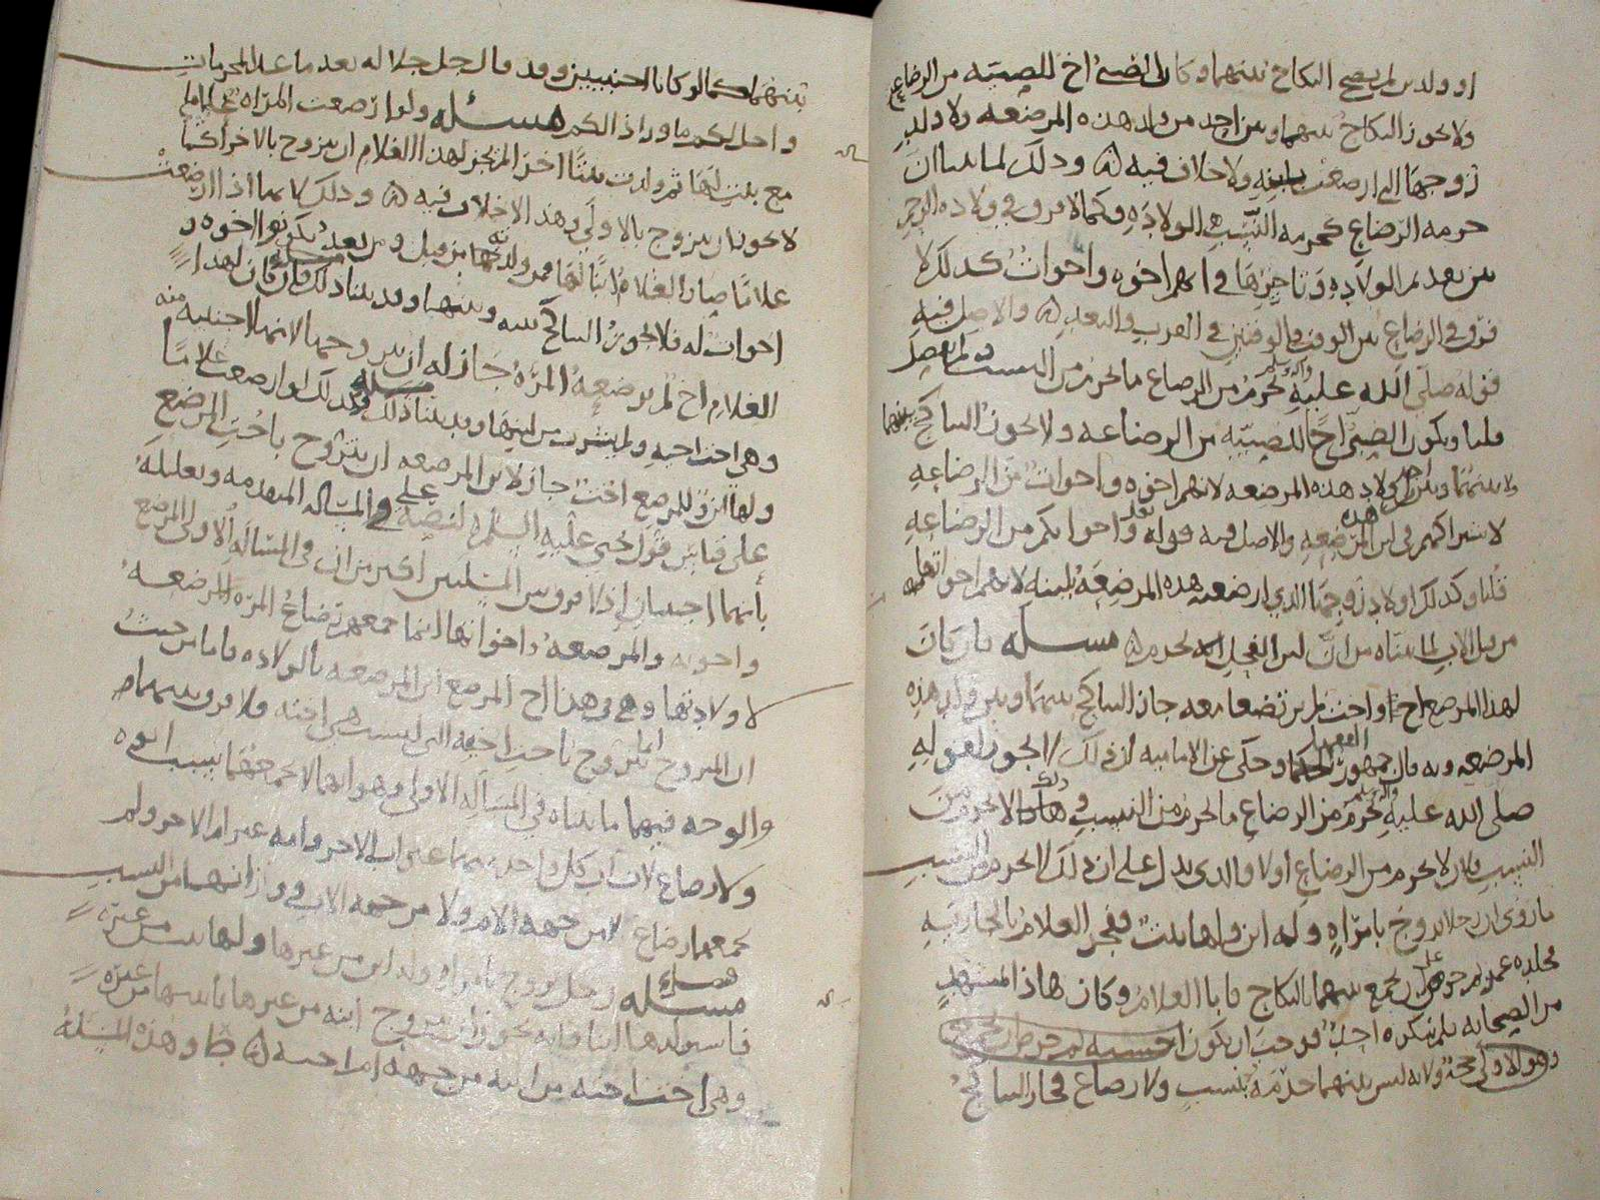 او ولدين لم يصح النكاح بينهما وكان الصبي اخ للصبيه من الرضاع
ولا يجوز النكاح بينهما وبين احد من ولد هذه المرضعه ولا ولد
زوجها الذي ارضعت بلبنه ولا خلاف فيه ودلك لما بينا ان
حرمه الرضاع كحرمه النسب في الولاده وكما لا فرق في ولاده
من بعد الولاده وتاخرها في انهم اخوه واخوات كدلك لا
فرق في الرضاع بين الوقت والوقتين في القرب والبعد والاصل فيه
قوله صلى الله عليه واله وسلم يحرم من الرضاع ما يحرم من النسب
قلنا ويكون الصبي اخا للصبيه من الرضاعه ولا يجوز التناكح بينهما
ولا بينهما وبين احد من اولاد هذه المرضعه لانهم اخوه واخوات من الرضاعه
لاشتراكهم في لبن هذه المرضعه والاصل فيه قوله تعالى واخواتكم من الرضاعه
قلنا وكدلك اولاد زوجها الذي ارضعت هذه المرضعه بلبنه لانهم اخواتهما
من قبل الاب لما بيناه من ان لبن الفحل يحرم مسله فان كان
لهذا المرضع اخ او اخت لم يرتضعا معه جاز التناكح بينهما وبين ولد هذه
المرضعه وبه قال جمهور الفقها وحكي عن الاماميه ان ذلك لا يجوز لقوله
صلى الله عليه واله وسلم يحرم من الرضاع ما يحرم من النسب وذلك لا يحرم من
النسب فلا يحرم من الرضاع اولا والذي يدل على ان ذلك لا يحرم من النسب
ما روي ان رجلا تزوج بامراه وله ابن ولها بنت ففجر الغلام بالجاريه
فجلده عمر ثم حرص على ان يجمع بينهما بالنكاح فابا الغلام وكان هاذا بمشهد
من الصحابه فلم ينكره احد فوجب ان يكون
وهو الاولى حجة ولانه ليس بينهما حرمه بنسب ولا رضاع فجاز التناكح
بينهما كما لو كانا اجنبيين وقد قال جل جلاله بعد ما عد المحرمات
واحل لكم ما وراء ذالكم مسئله ولو ارضعت المراه غلاما
مع بنت لها ثم ولدت بنتا اخرى لم يجز لهذا الغلام ان يتزوج بالاخرى كما
لا يجوز ان يتزوج بالاولى وهذا لا خلاف فيه ودلك لانها اذا ارضعت
غلاما صار الغلام ابنا لها فمن ولدته من قبل ومن بعد يكونوا اخوه و
اخوات له فلا يجوز التناكح بينه وبينهما وقد بينا ذلك مسله فان كان لهذا
الغلام اخ لم ترضعه المراه جاز له ان يتزوجها لانها اجنبيه منه
وهي اخت اخيه ولم يشرب من لبنها وقد بينا ذلك مسله وكدلك لو ارضعت غلاما
ولها ابن وللمرضع اخت جاز لابن المرضعه ان يتزوج باخت المرضع
على قياس قول يحيى عليه السلم لنصه على في المسئاله المتقدمه وتعليله
بانهما اجنبيان اذ لا فرق بين المسئلتين اكثر من ان في المسئاله الاولى المرضع
واخوته والمرضعه واخواتها انما جمعهم رضاع المراه المرضعه
لاولادتها وفي هذا اخ المرضع ابن المرضعه بالولاده فاما من حيث
ان المتزوج انما تزوج باخت اخيه التي ليست هي اخته فلا فرق بينهما
والوجه فيهما ما بيناه في المسئاله الاولى وهو انهما لا يجمعهما نسب ابوه
ولا رضاع لان اب كل واحد منهما غير اب الاخر وامه غير ام الاخر ولم
يجمعهما رضاع لا من جهه الام ولا من جهه الاب
مسله رجل تزوج بامراه وله ابن من غيرها ولها بنت من غيره
فاستولدها ابنا فانه يجوز ان يتزوج ابنه من غيرها بابنتها من غيره
وهي اخت اخيه من ابيه من جهه ام اخيه وهذه المسئله